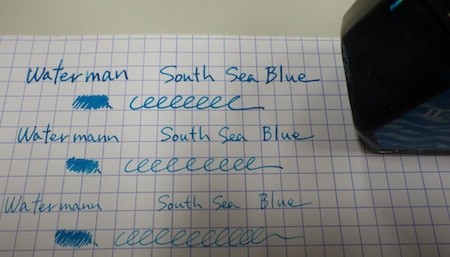 Waterman South Sea Blue
Watermann South Sea Blue
Watermann South Sea Blue